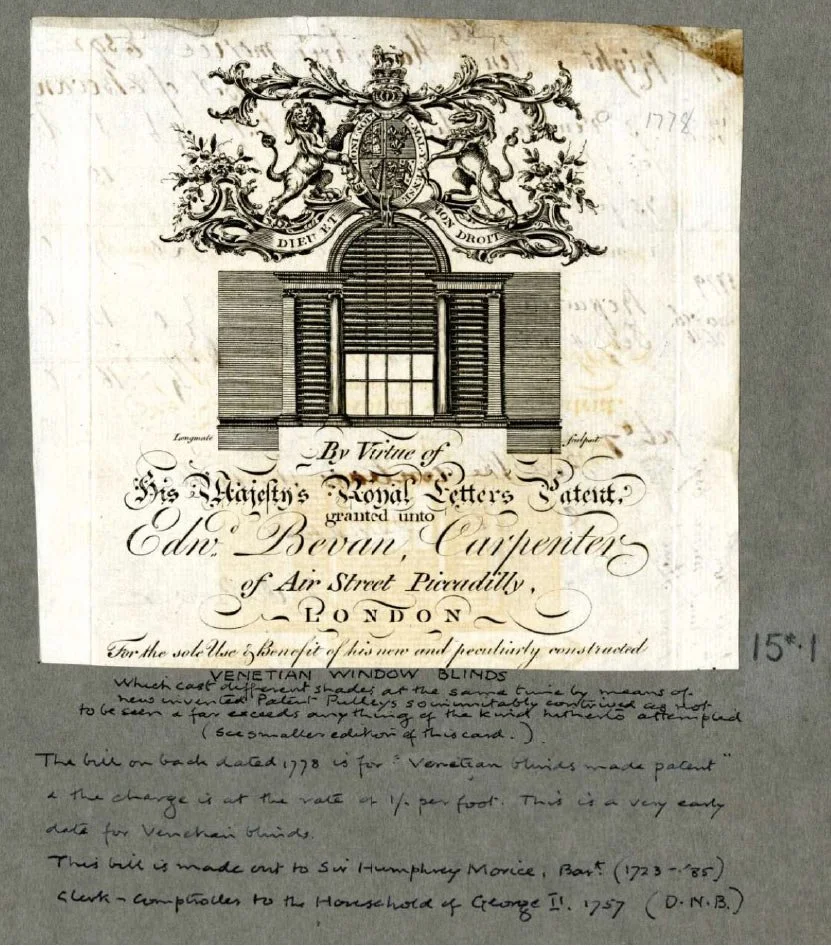 1778
HONI SOIT
MAL Y PENSE
DIEU ET MON DROIT
Longmate sculpsit
By Virtue of
His Majesty's Royal Letters Patent,
granted unto
Edwd. Bevan, Carpenter
of Air Street Piccadilly,
LONDON
For the sole Use & Benefit of his new and peculiarly constructed
15*.1
VENETIAN WINDOW BLINDS
which cast different shades at the same time by means of
new invented Patent Pulleys so inimitably contrived as not
to be seen & far exceeds anything of the kind hitherto attempted
(See smaller edition of this card.)
The bill on back dated 1778 is for "Venetian blinds made patent"
& the charge is at the rate of 1/- per foot. This is a very early
date for Venetian blinds.
This bill is made out to Sir Humphrey Morice, Bart. (1723-'85)
Clerk-Comptroller to the Household of George II. 1757 (D.N.B.)